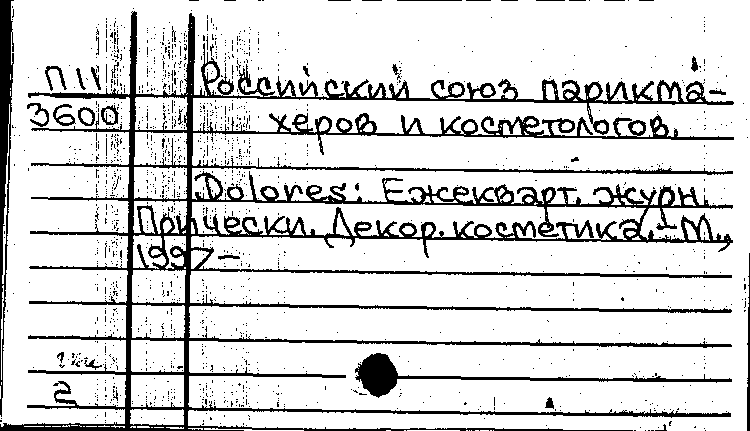 П 11
3600
Российский союз парикма-
херов и косметологов.
Dolores: Ежекварт. журн.
Прически. Декор. косметика. - М.,
1997 -
2